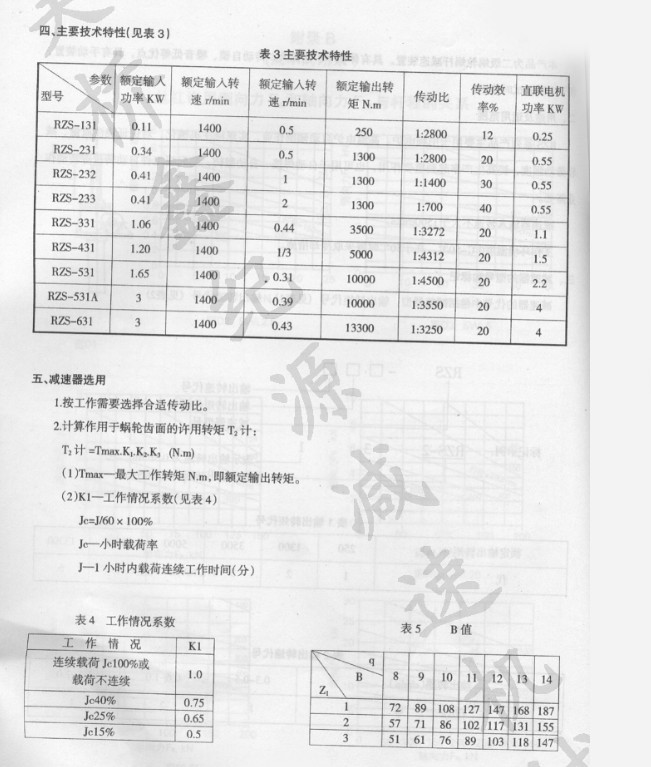 四、主要技术特性(见表3)
表3主要技术特性
参数 型号 额定输入功率 KW 额定输入转速 r/min 额定输入转速 r/min 额定输出转矩 N.m 传动比 传动效率% 直联电机功率 KW
RZS-131 0.11 1400 0.5 250 1:2800 12 0.25
RZS-231 0.34 1400 0.5 1300 1:2800 20 0.55
RZS-232 0.41 1400 1 1300 1:1400 30 0.55
RZS-233 0.41 1400 2 1300 1:700 40 0.55
RZS-331 1.06 1400 0.44 3500 1:3272 20 1.1
RZS-431 1.20 1400 1/3 5000 1:4312 20 1.5
RZS-531 1.65 1400 0.31 10000 1:4500 20 2.2
RZS-531A 3 1400 0.39 10000 1:3550 20 4
RZS-631 3 1400 0.43 13300 1:3250 20 4
五、减速器选用
1.按工作需要选择合适传动比。
2.计算作用于蜗轮齿面的许用转矩 T₂计:
T₂计=Tmax.K₁.K₂.K₃ (N.m)
(1)Tmax—最大工作转矩 N.m,即额定输出转矩。
(2)K1—工作情况系数(见表4)
Jc=J/60×100%
Jc—小时载荷率
J—1小时内载荷连续工作时间(分)
表4 工作情况系数
工作情况 K1
连续载荷 Jc100%或
载荷不连续 1.0
Jc40% 0.75
Jc25% 0.65
Jc15% 0.5
表5 B值
q B Z₁ 8 9 10 11 12 13 14
1 72 89 108 127 147 168 187
2 57 71 86 102 117 131 155
3 51 61 76 89 103 118 147
桥鑫纪源减速机